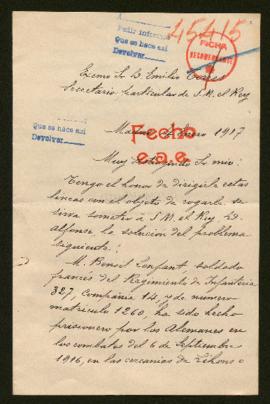 Pedir informe
Que se hace así
Devolver
45415
FECHA
Excmo Sr D Emilio Torres
Secretario particular de S. M. el Rey
Que se hace así
Devolver
Madrid Enero 1917
Fecho
e.a.e.
Muy distinguido Sr mio:
Tengo el honor de dirigirle estas
lineas con el objeto de rogarle se
sirva someter á S. M. el Rey D.
Alfonso, la solución del problema
siguiente:
M. Lenfant, soldado
francés del Regimiento de Infanteria
327, Compañia 14, y de numero
matricula 1260, ha sido hecho
prisionero por los Alemanes en
los combates del 6 de Septiembre
1916, en las cercanias de